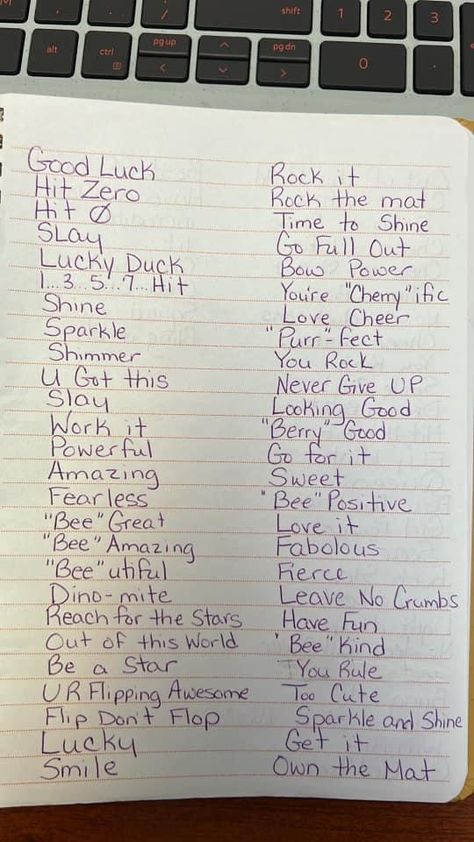 shift
1
2
3
alt
ctrl
pg up
pg dn
0
Good Luck
Hit Zero
Hit Ø
SLay
Lucky Duck
1...3...5...7...Hit
Shine
Sparkle
Shimmer
U Got this
Slay
Work it
Powerful
Amazing
Fearless
"Bee" Great
"Bee" Amazing
"Bee" utiful
Dino-mite
Reach for the Stars
Out of this World
Be a Star
UR Flipping Awesome
Flip Don't Flop
Lucky
Smile
Rock it
Rock the mat
Time to Shine
Go Full Out
Bow Power
You're "Cherry" ific
Love Cheer
"Purr"-fect
You Rock
Never Give UP
Looking Good
"Berry" Good
Go for it
Sweet
"Bee" Positive
Love it
Fabolous
Fierce
Leave No Crumbs
Have Fun
"Bee" Kind
You Rule
Too Cute
Sparkle and Shine
Get it
Own the Mat